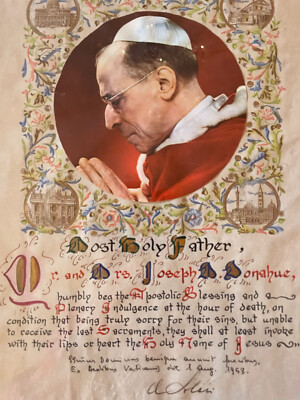 Most Holy Father,
Mr. and Mrs. Joseph D. Donahue,
humbly beg the Apostolic Blessing and a
Plenary Indulgence at the hour of death, on
condition that being truly sorry for their sins, but unable
to receive the last Sacraments, they shall at least invoke
with their lips or heart the Holy Name of Jesus
Ssmus Dominus benigne annuit precibus.
Ex Aedibus Vaticanis die 1 Aug. 1953.